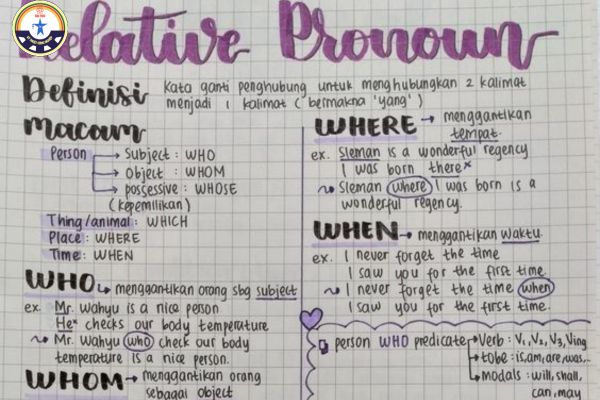 Relative Pronoun
Definisi
Kata ganti penghubung untuk menghubungkan 2 kalimat
menjadi 1 kalimat (bermakna 'yang')
macam
Person → Subject : WHO
→ Object : WHOM
→ possessive : WHOSE
(kepemilikan)
Thing/animal : WHICH
Place : WHERE
Time : WHEN
WHO → menggantikan orang sbg subject
ex. Mr. Wahyu is a nice person
He* checks our body temperature
Mr. Wahyu who check our body
temperature is a nice person.
WHOM → menggantikan orang
sebagai object
WHERE → menggantikan
tempat.
ex. Sleman is a wonderful regency
I was born there*
Sleman where I was born is a
wonderful regency.
WHEN → menggantikan waktu.
ex. I never forget the time
I saw you for the first time
I never forget the time when
I saw you for the first time.
person WHO predicate → Verb : V1, V2, V3, Ving
→ tobe : is, am, are, was, ..
→ modals : will, shall,
can, may